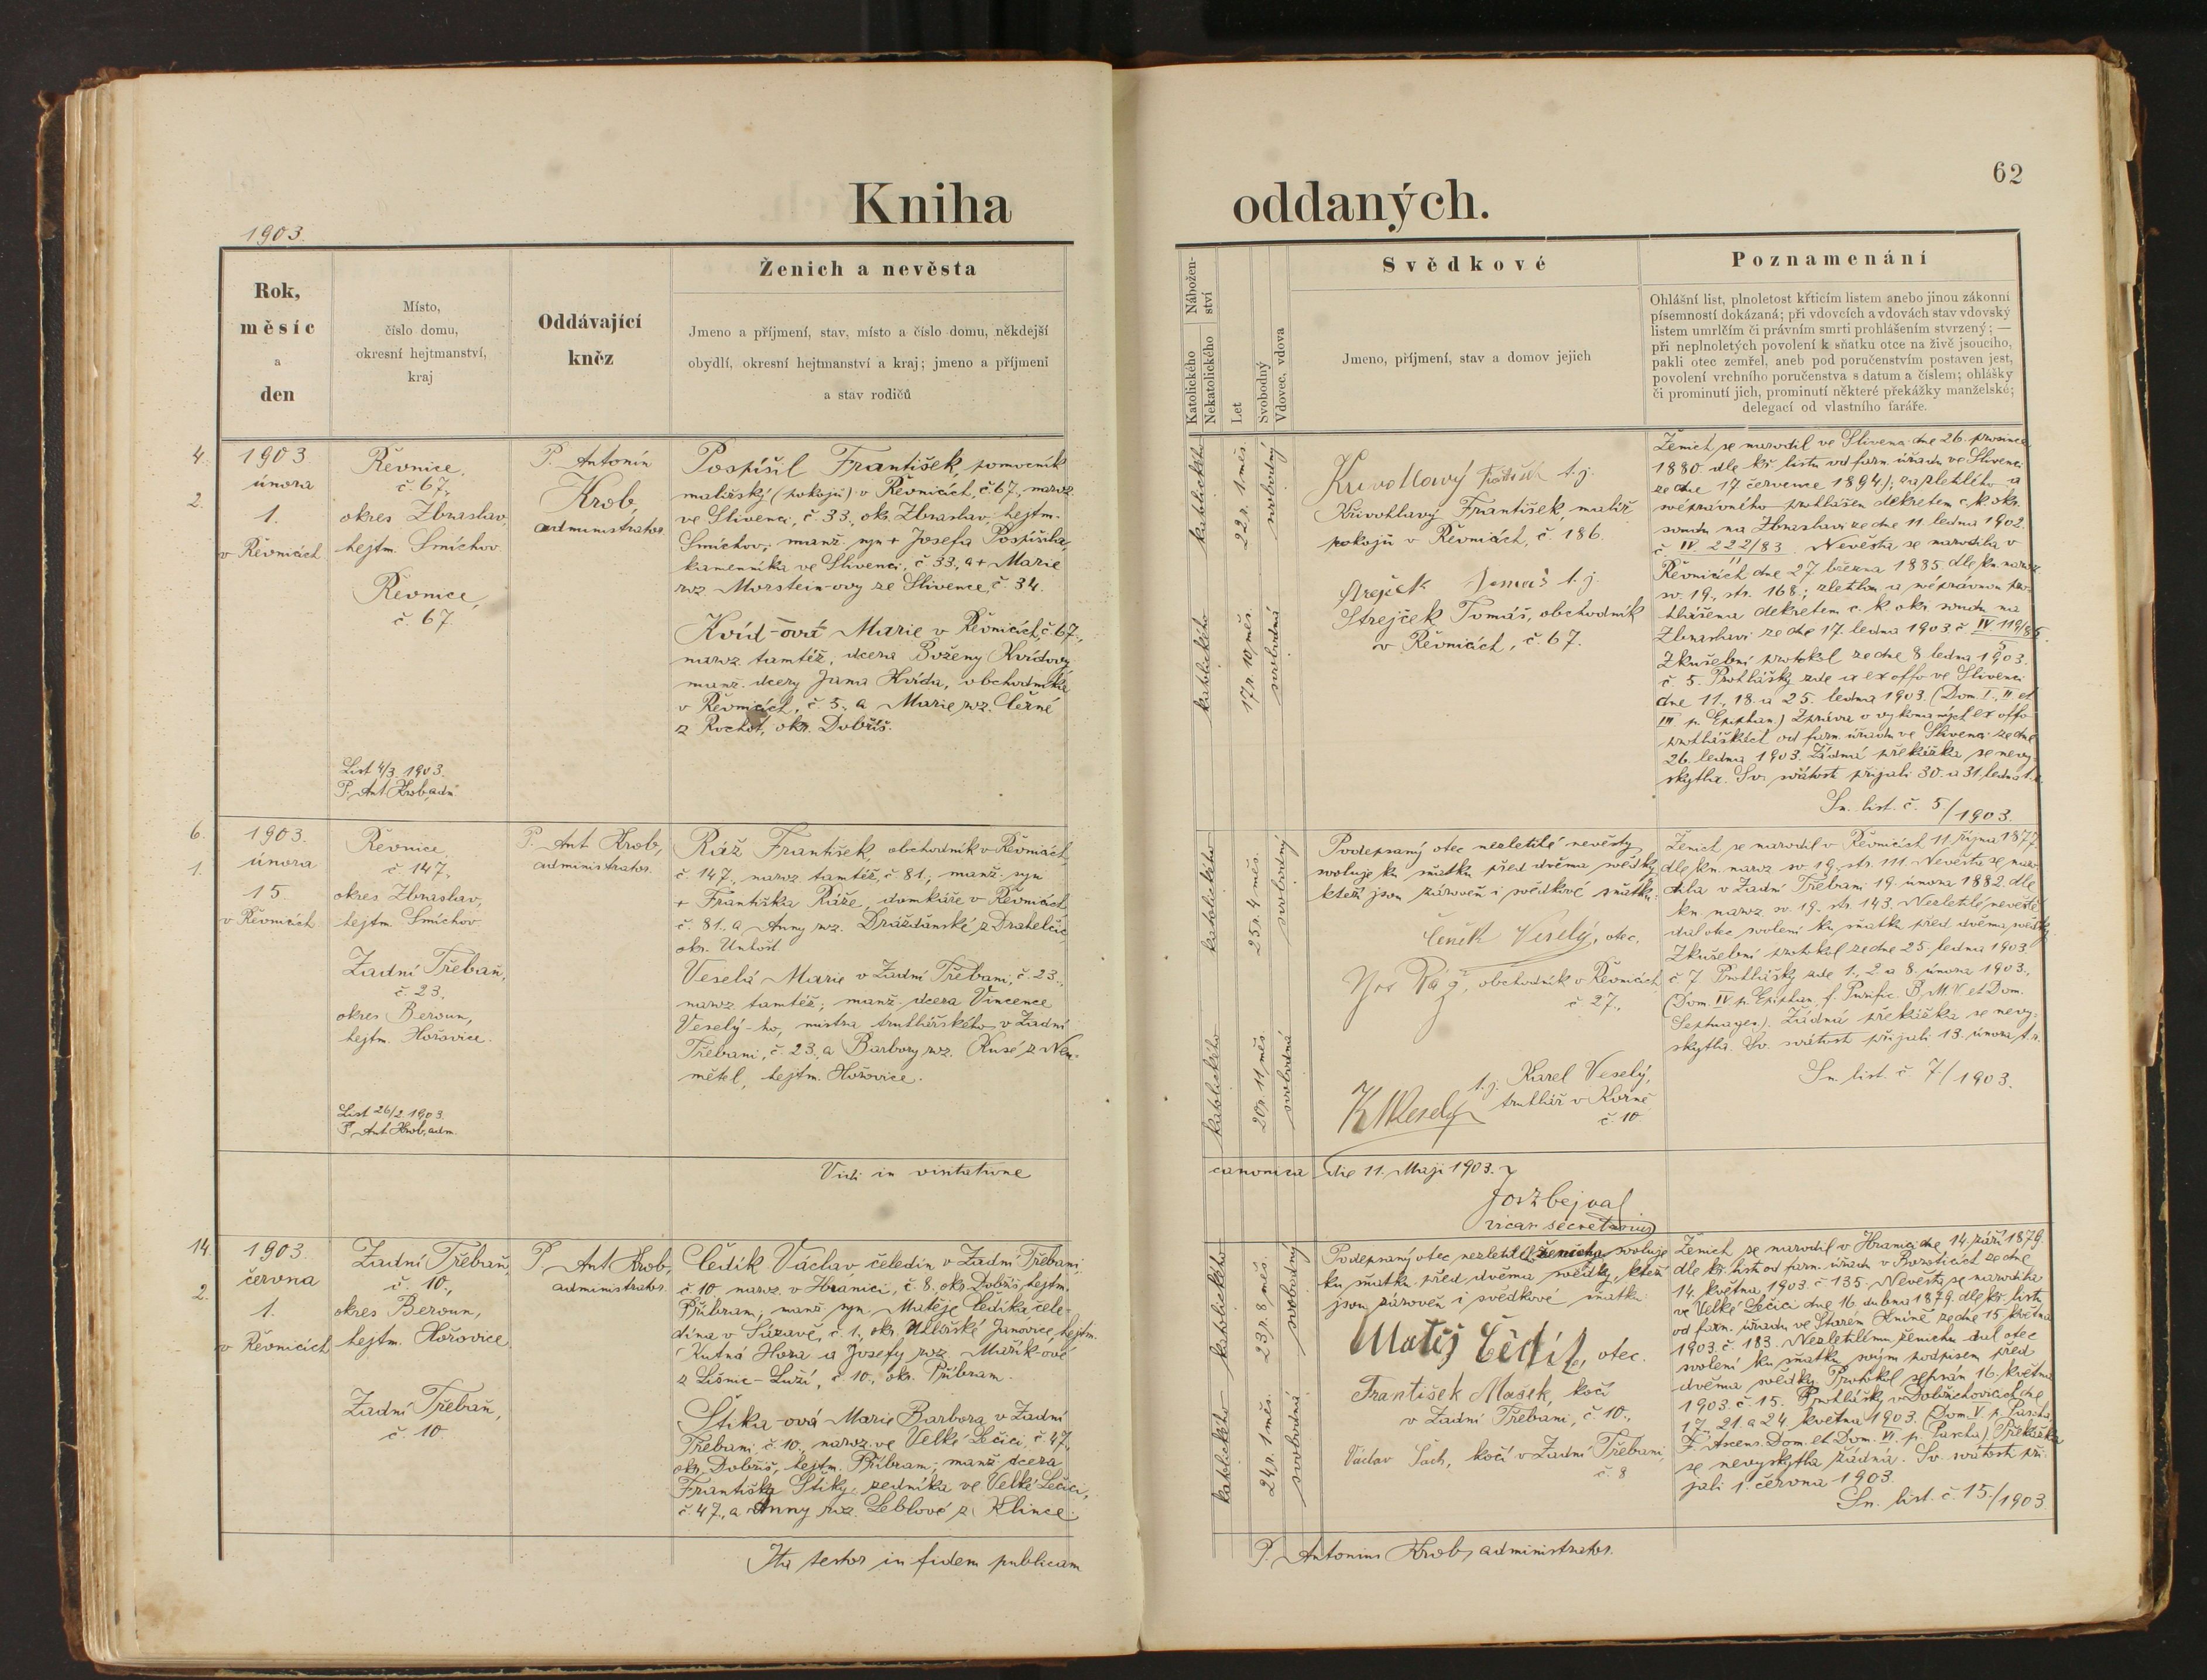 Kniha
1903.
Rok,
měsíc
a
den
Místo,
číslo domu,
okresní hejtmanství,
kraj
Oddávající
kněz
Ženich a nevěsta
Jmeno a příjmení, stav, místo a číslo domu, někdejší
obydlí, okresní hejtmanství a kraj; jmeno a příjmení
a stav rodičů
4.
2.
1903
února
1.
v Řevnicích
Řevnice,
č. 67.,
okres Zbraslav,
hejtm. Smíchov.
Řevnice,
č. 67.
List 4/3. 1903.
P. Ant. Krob, adm.
P. Antonín
Krob,
administrator.
Pospíšil František, pomocník
malířský (pokojů) v Řevnicích, č. 67., naroz.
ve Slivenci, č. 33., okr. Zbraslav, hejtm.
Smíchov; manž. syn + Josefa Pospíšila,
kamenníka ve Slivenci, č. 33., a + Marie
roz. Morstein-ovy ze Slivence, č. 34.
Kvíd-ová Marie v Řevnicích, č. 67.,
naroz. tamtéž, dcera Boženy Kvídovy,
manž. dcery Jana Kvída, obchodníka
v Řevnicích, č. 5., a Marie roz. Černé
z Rochot, okr. Dobříš.
6.
1.
1903.
února
15.
v Řevnicích
Řevnice,
č. 147.,
okres Zbraslav,
hejtm. Smíchov.
Zadní Třebaň,
č. 23.,
okres Beroun,
hejtm. Hořovice.
List 26/2. 1903.
P. Ant. Krob, adm.
P. Ant. Krob,
administrator.
Ráž František, obchodník v Řevnicích,
č. 147., naroz. tamtéž, č. 81.; manž. syn
+ Františka Ráže, domkáře v Řevnicích,
č. 81. a Anny roz. Dráždanské z Drahelčic,
okr. Unhošť.
Veselá Marie v Zadní Třebani, č. 23.,
naroz. tamtéž; manž. dcera Vincence
Veselý-ho, mistra truhlářského v Zadní
Třebani, č. 23., a Barbory roz. Kusé z Neu-
mětel, hejtm. Hořovice.
Vidi in visitatione
14.
2.
1903.
června
1.
v Řevnicích
Zadní Třebaň,
č. 10.,
okres Beroun,
hejtm. Hořovice
Zadní Třebaň,
č. 10
P. Ant. Krob,
administrator.
Čedík Václav čeledín v Zadní Třebani,
č. 10. naroz. v Hranici, č. 8. okr. Dobříš, hejtm.
Příbram; manž. syn. Matěje Čedíka, čele-
dína v Sázavě, č. 1., okr. Uhlířské Janovice, hejtm.
Kutná Hora a Josefy roz. Mařík-ové
z Lišnic-Luží, č. 10., okr. Příbram.
Štika-ová Marie Barbora v Zadní
Třebani, č. 10., naroz. ve Velké Lečici, č. 47.,
okr. Dobříš, hejtm. Příbram; manž. dcera
Františka Štiky, zedníka ve Velké Lečici,
č. 47., a Anny roz. Leblové z Klince.
Ita testor in fidem publicam
62
oddaných.
Nábožen-
ství
Katolického
Nekatolického
Let
Svobodný
Vdovec, vdova
Svědkové
Jmeno, příjmení, stav a domov jejich
Poznamenání
Ohlášní list, plnoletost křticím listem anebo jinou zákonní
písemností dokázaná; při vdovcích a vdovách stav vdovský
listem umrlčím či právním smrti prohlášením stvrzený; —
při neplnoletých povolení k sňatku otce na živě jsoucího,
pakli otec zemřel, aneb pod poručenstvím postaven jest,
povolení vrchního poručenstva s datum a číslem; ohlášky
či prominutí jich, prominutí některé překážky manželské;
delegací od vlastního faráře.
katolického
22 r. 1 měs.
svobodný
katolického
17 r. 10 měs.
svobodná
t. j.
Křivohlavý František, malíř
pokojů v Řevnicích, č. 186.
t. j.
Strejček Tomáš, obchodník
v Řevnicích, č. 67.
Ženich se narodil ve Slivenci dne 26. prosince
1880 dle kř. listu od farn. úřadu ve Slivenci
ze dne 17 července 1894); za zletilého a
svéprávného prohlášen dekretem c. k. okr.
soudu na Zbraslavi ze dne 11. ledna 1902.
č. IV. 222/83. Nevěsta se narodila v
Řevnicích dne 27. března 1885. dle kn. naroz.
sv. 19., str. 168; zletilou a svéprávnou pro-
hlášena dekretem c. k. okr. soudu na
Zbraslavi ze dne 17. ledna 1903 č. IV 119/85.
Zkušební protokol ze dne 8 ledna 1903.
č. 5. Prohlášky zde a ex offo ve Slivenci
dne 11., 18. a 25. ledna 1903. (Dom. I., II et
III p. Epiphan.) Zpráva o vykonaných ex offo
prohláškách od farn. úřadu ve Slivenci ze dne
26. ledna 1903. Žádná překážka se nevy-
skytla. Sv. svátosti přijali 30. a 31. ledna t. r.
Sn. list. č. 5/1903.
katolického
25 r. 4 měs.
svobodný
katolického
20 r. 11 měs.
svobodná
Podepsaný otec nezletilé nevěsty
svoluje ku sňatku před dvěma svědky,
kteří jsou zároveň i svědkové sňatku:
Čeněk Veselý, otec.
Jos. Ráž, obchodník v Řevnicích
č. 27.,
t. j. Karel Veselý,
truhlář v Korně
č. 10.
K Veselý
Ženich se narodil v Řevnicích 11 října 1877.
dle kn. naroz. sv. 19., str. 111. Nevěsta se naro-
dila v Zadní Třebani 19. února 1882. dle
kn. naroz. sv. 19. str. 143. Nezletilé nevěstě
dal otec svolení ku sňatku před dvěma svědky.
Zkušební protokol ze dne 25. ledna 1903.
č. 7. Prohlášky zde 1., 2. a 8. února 1903.,
(Dom. IV p. Epiphan., f. Purific. B. M. V. et Dom.
Septuages.). Žádná překážka se nevy-
skytla. Sv. svátosti přijali 13. února t. r.
Sn. list. č. 7/1903.
canonica die 11. Maji 1903.
vicar. secretarius
katolického
23 r. 8 měs.
svobodný
katolického
24 r. 1 měs.
svobodná
Podepsaný otec nezletilého ženicha svoluje
ku sňatku před dvěma svědky, kteří
jsou zároveň i svědkové sňatku:
Matěj Čedík, otec.
František Mašek, kočí
v Zadní Třebani, č. 10.,
Václav Šach, kočí v Zadní Třebani,
č. 8
Ženich se narodil v Hranici dne 14. září 1879.
dle kř. listu od farn. úřadu v ze dne
14. května 1903. č. 135. Nevěsta se narodila
ve Velké Lečici dne 16. dubna 1879. dle kř. listu
od farn. úřadu ve Starém Kníně ze dne 15 května
1903. č. 183. Nezletilému ženichu dal otec
svolení ku sňatku svým podpisem před
dvěma svědky. Protokol sepsán 16. května
1903. č. 15. Prohlášky v Dobřichovicích dne
17., 21. a 24. května 1903. (Dom. V. p. Pascha,
F. Ascens. Dom. et Dom. VI. p. Pascha). Překážka
se nevyskytla žádná. Sv. svátosti při-
jali 1. června 1903.
Sn. list. č. 15./1903.
P. Antonius Krob, administrator.